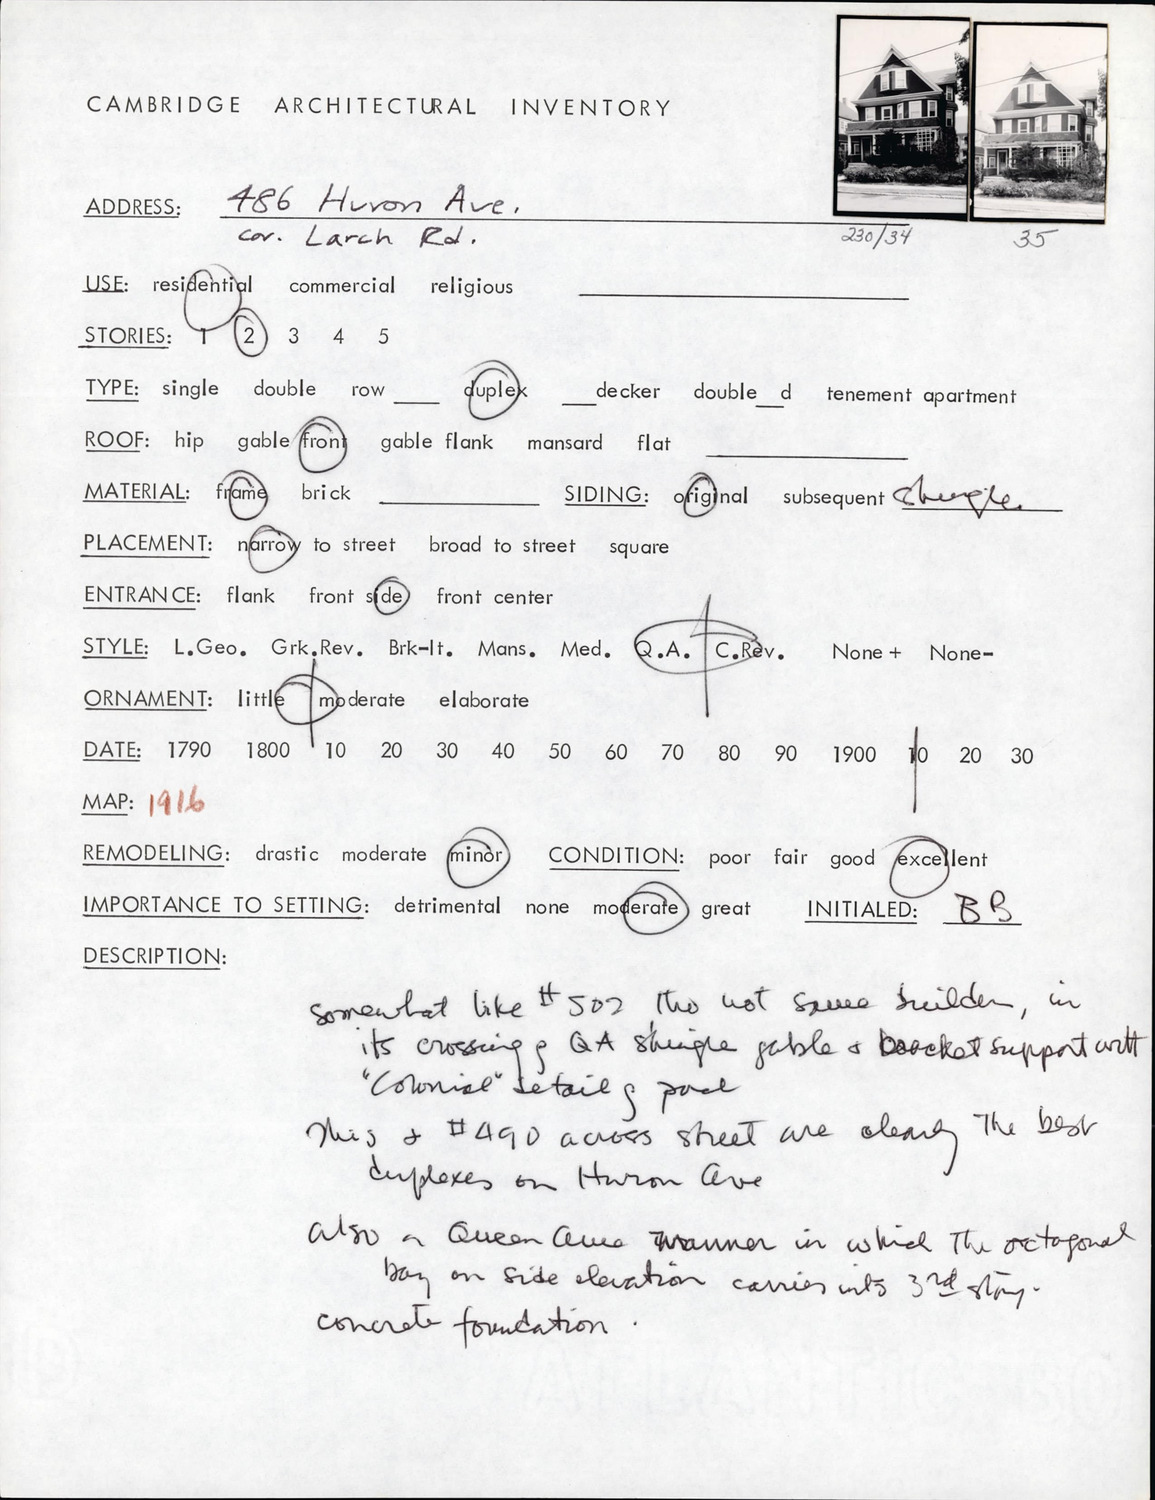 CAMBRIDGE ARCHITECTURAL INVENTORY
ADDRESS: 486 Huron Ave.
cor. Larch Rd.
230/34 35
USE: residential commercial religious
STORIES: 1 2 3 4 5
TYPE: single double row ___ duplex ___decker double__d tenement apartment
ROOF: hip gable front gable flank mansard flat
MATERIAL: frame brick SIDING: original subsequent shingle
PLACEMENT: narrow to street broad to street square
ENTRANCE: flank front side front center
STYLE: L.Geo. Grk.Rev. Brk-It. Mans. Med. Q.A. C.Rev. None+ None-
ORNAMENT: little moderate elaborate
DATE: 1790 1800 10 20 30 40 50 60 70 80 90 1900 10 20 30
MAP: 1916
REMODELING: drastic moderate minor CONDITION: poor fair good excellent
IMPORTANCE TO SETTING: detrimental none moderate great INITIALED: BB
DESCRIPTION:
somewhat like #502 tho not same builder, in
its crossing of QA shingle gable & bracket support with
"Colonial" detail of
This & #490 across street are clearly the best
duplexes on Huron Ave
also a Queen Anne manner in which the octagonal
bay on side elevation carries into 3rd story.
concrete foundation.